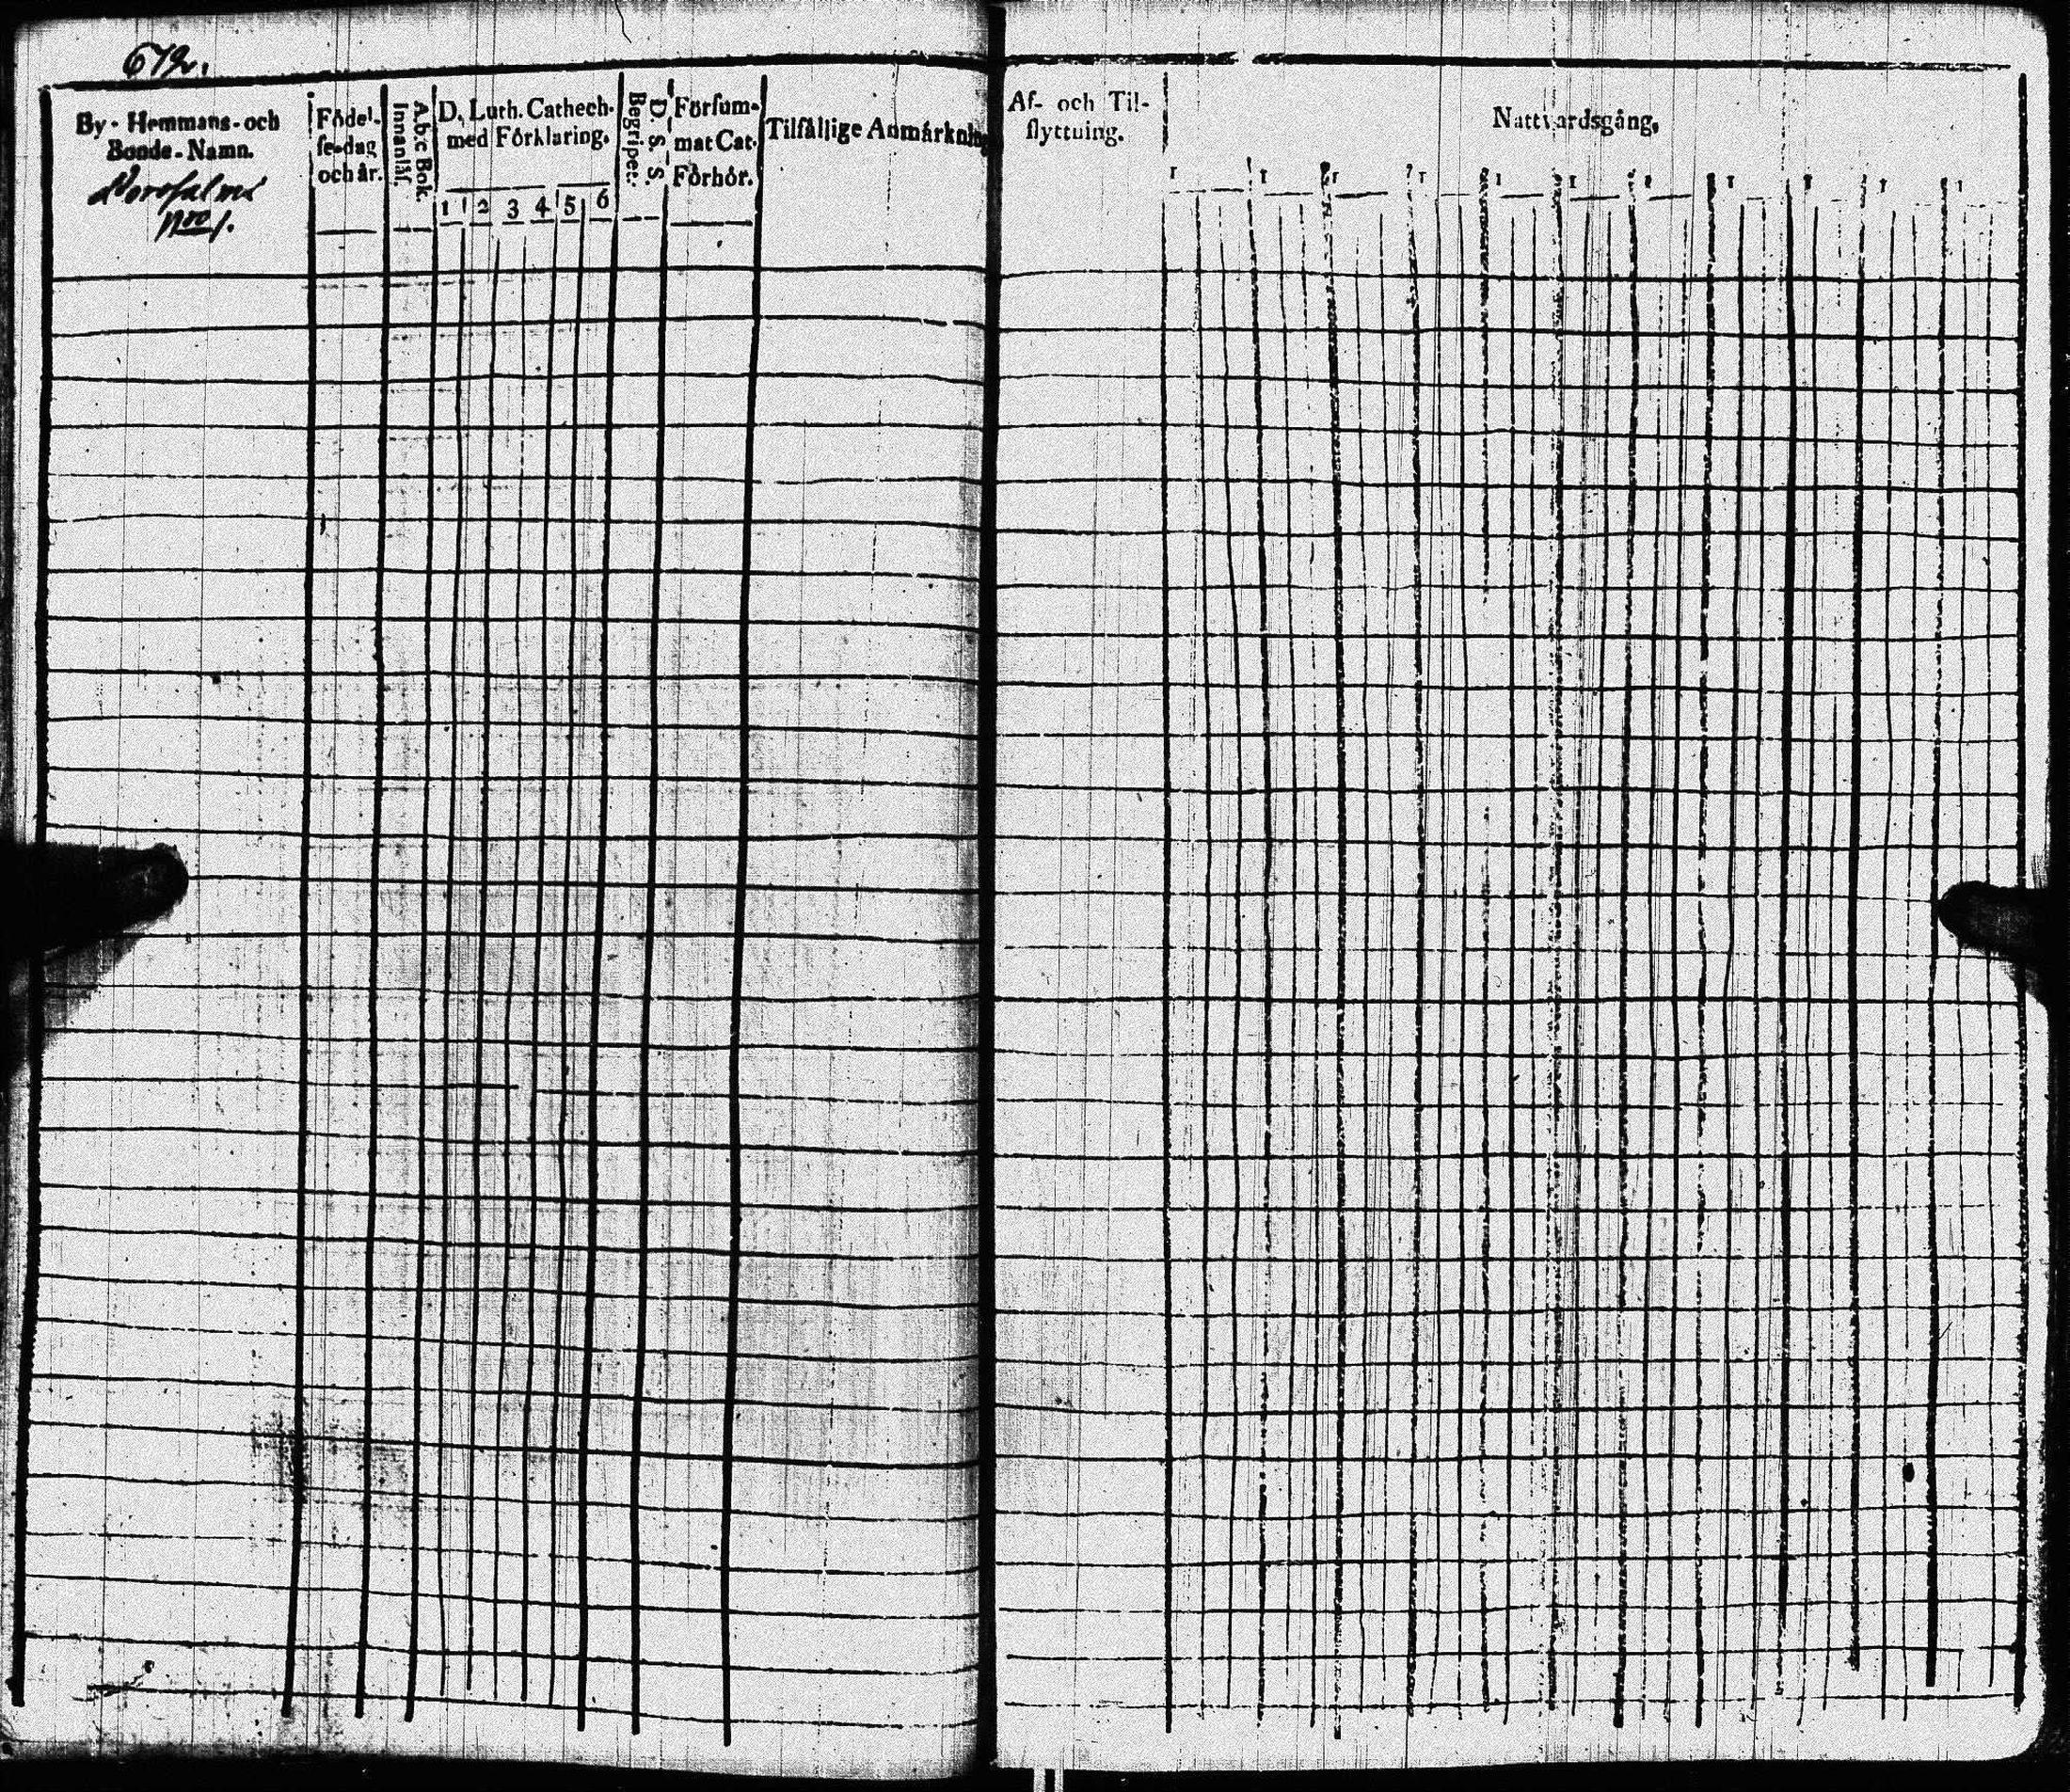 672.
By- Hemmans- och
Bonde-Namn.
No 1.
Födel-
se-dag
och år.
A.b.c Bok.
Innanläs.
D. Luth. Cathech-
med Förklaring.
1 2 3 4 5 6
D. S. S.
Begriper.
Försum-
mat Cat.
Förhör.
Tilfällige Anmärkning
Af- och Til-
flyttning.
Nattvardsgång.
1 1 1 1 1 1 1 1 1 1 1